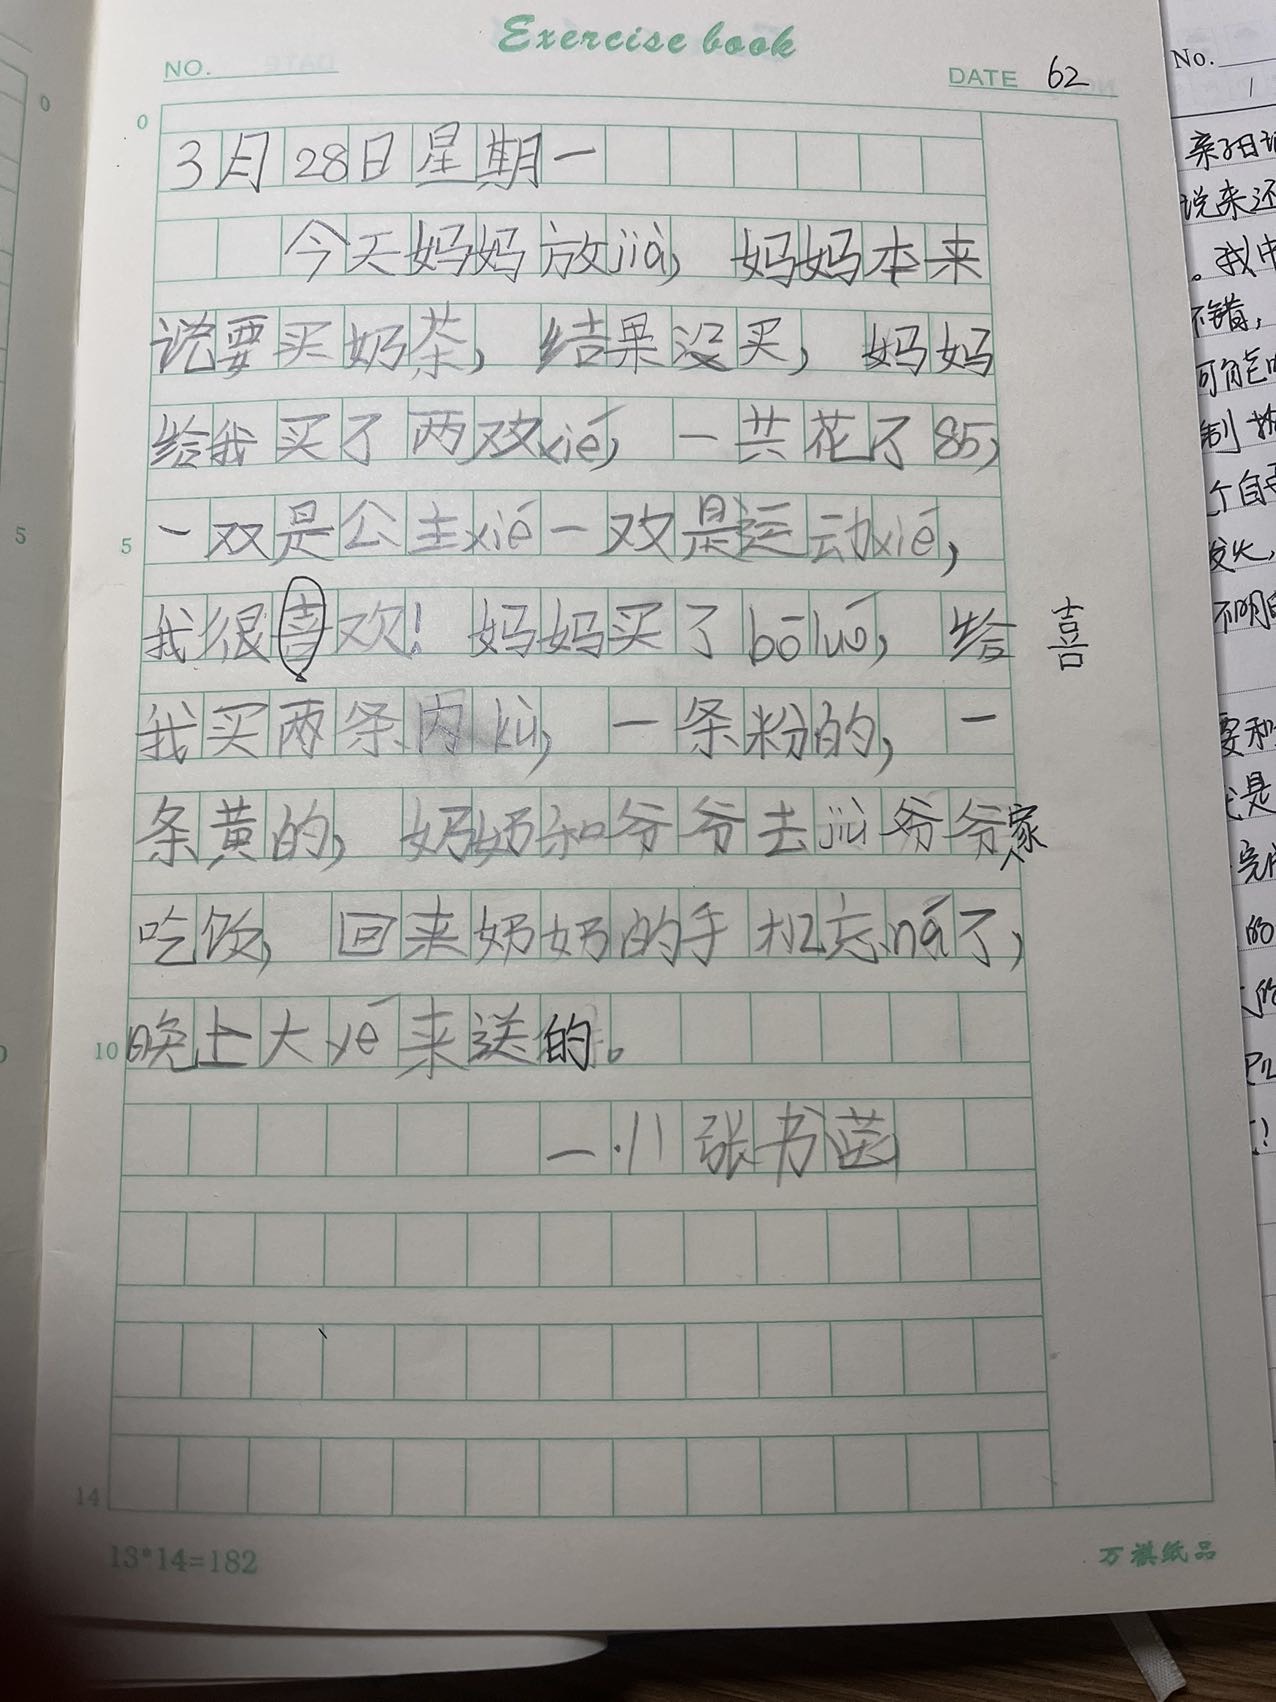 Exercise book
NO.
DATE 62
3月28日星期一
今天妈妈放jià，妈妈本来
说要买奶茶，结果没买，妈妈
给我买了两双xié，一共花了85，
一双是公主xié一双是运动xié，
我很喜欢！妈妈买了bōluó，给
喜
我买两条内kù，一条粉的，一
条黄的，奶奶和爷爷去jiù爷爷家
吃饭，回来奶奶的手机忘ná了，
晚上大yé来送的。
一.八 张书
0
5
10
14
13*14=182
万祺纸品
No.
1
亲子日记
说来还
。我中
不错，
可能
制
个自
发火，
不明白
要和
是
完
的